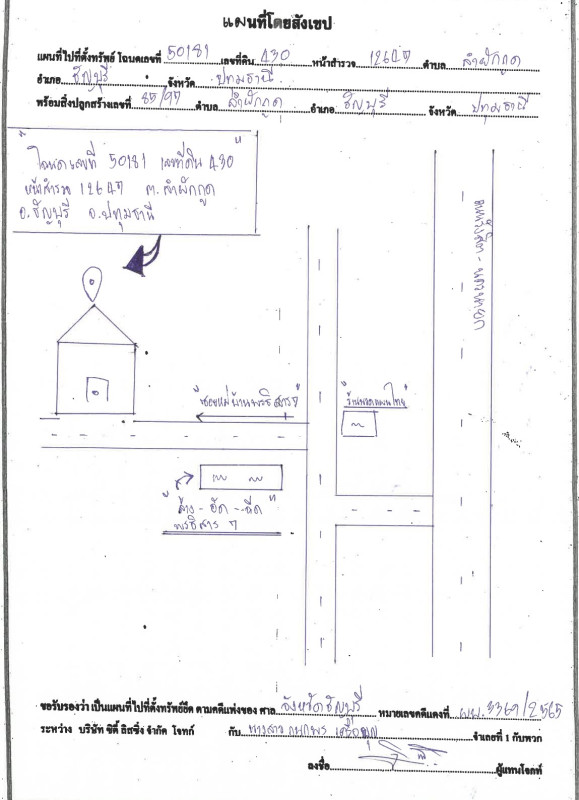 แผนที่โดยสังเขป
แผนที่ไปที่ตั้งทรัพย์ โฉนดเลขที่ 50181 เลขที่ดิน 430 หน้าสำรวจ 12647 ตำบล ลำผักกูด
อำเภอ ธัญบุรี จังหวัด ปทุมธานี
พร้อมสิ่งปลูกสร้างเลขที่ 85/97 ตำบล ลำผักกูด อำเภอ ธัญบุรี จังหวัด ปทุมธานี
"โฉนดเลขที่ 50181 เลขที่ดิน 430"
หน้าสำรวจ 12647 ต.ลำผักกูด
อ.ธัญบุรี จ.ปทุมธานี
"ซอยหมู่บ้านพรธิสาร 7"
"ร้านนวดแผนไทย"
"ล้าง - อัด - ฉีด"
พรธิสาร 7
ขอรับรองว่า เป็นแผนที่ไปที่ตั้งทรัพย์ยึด ตามคดีแพ่งของ ศาล จังหวัดธัญบุรี หมายเลขคดีแดงที่ ผบ.3369/2565
ระหว่าง บริษัท ซิตี้ ลิสซิ่ง จำกัด โจทก์ กับ นางสาว จำเลยที่ 1 กับพวก
ลงชื่อ ผู้แทนโจทก์